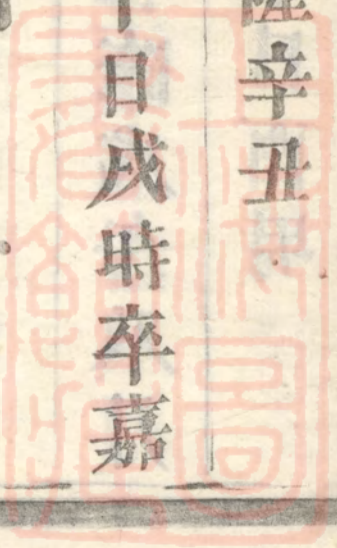 隆辛丑
十日戌時卒嘉